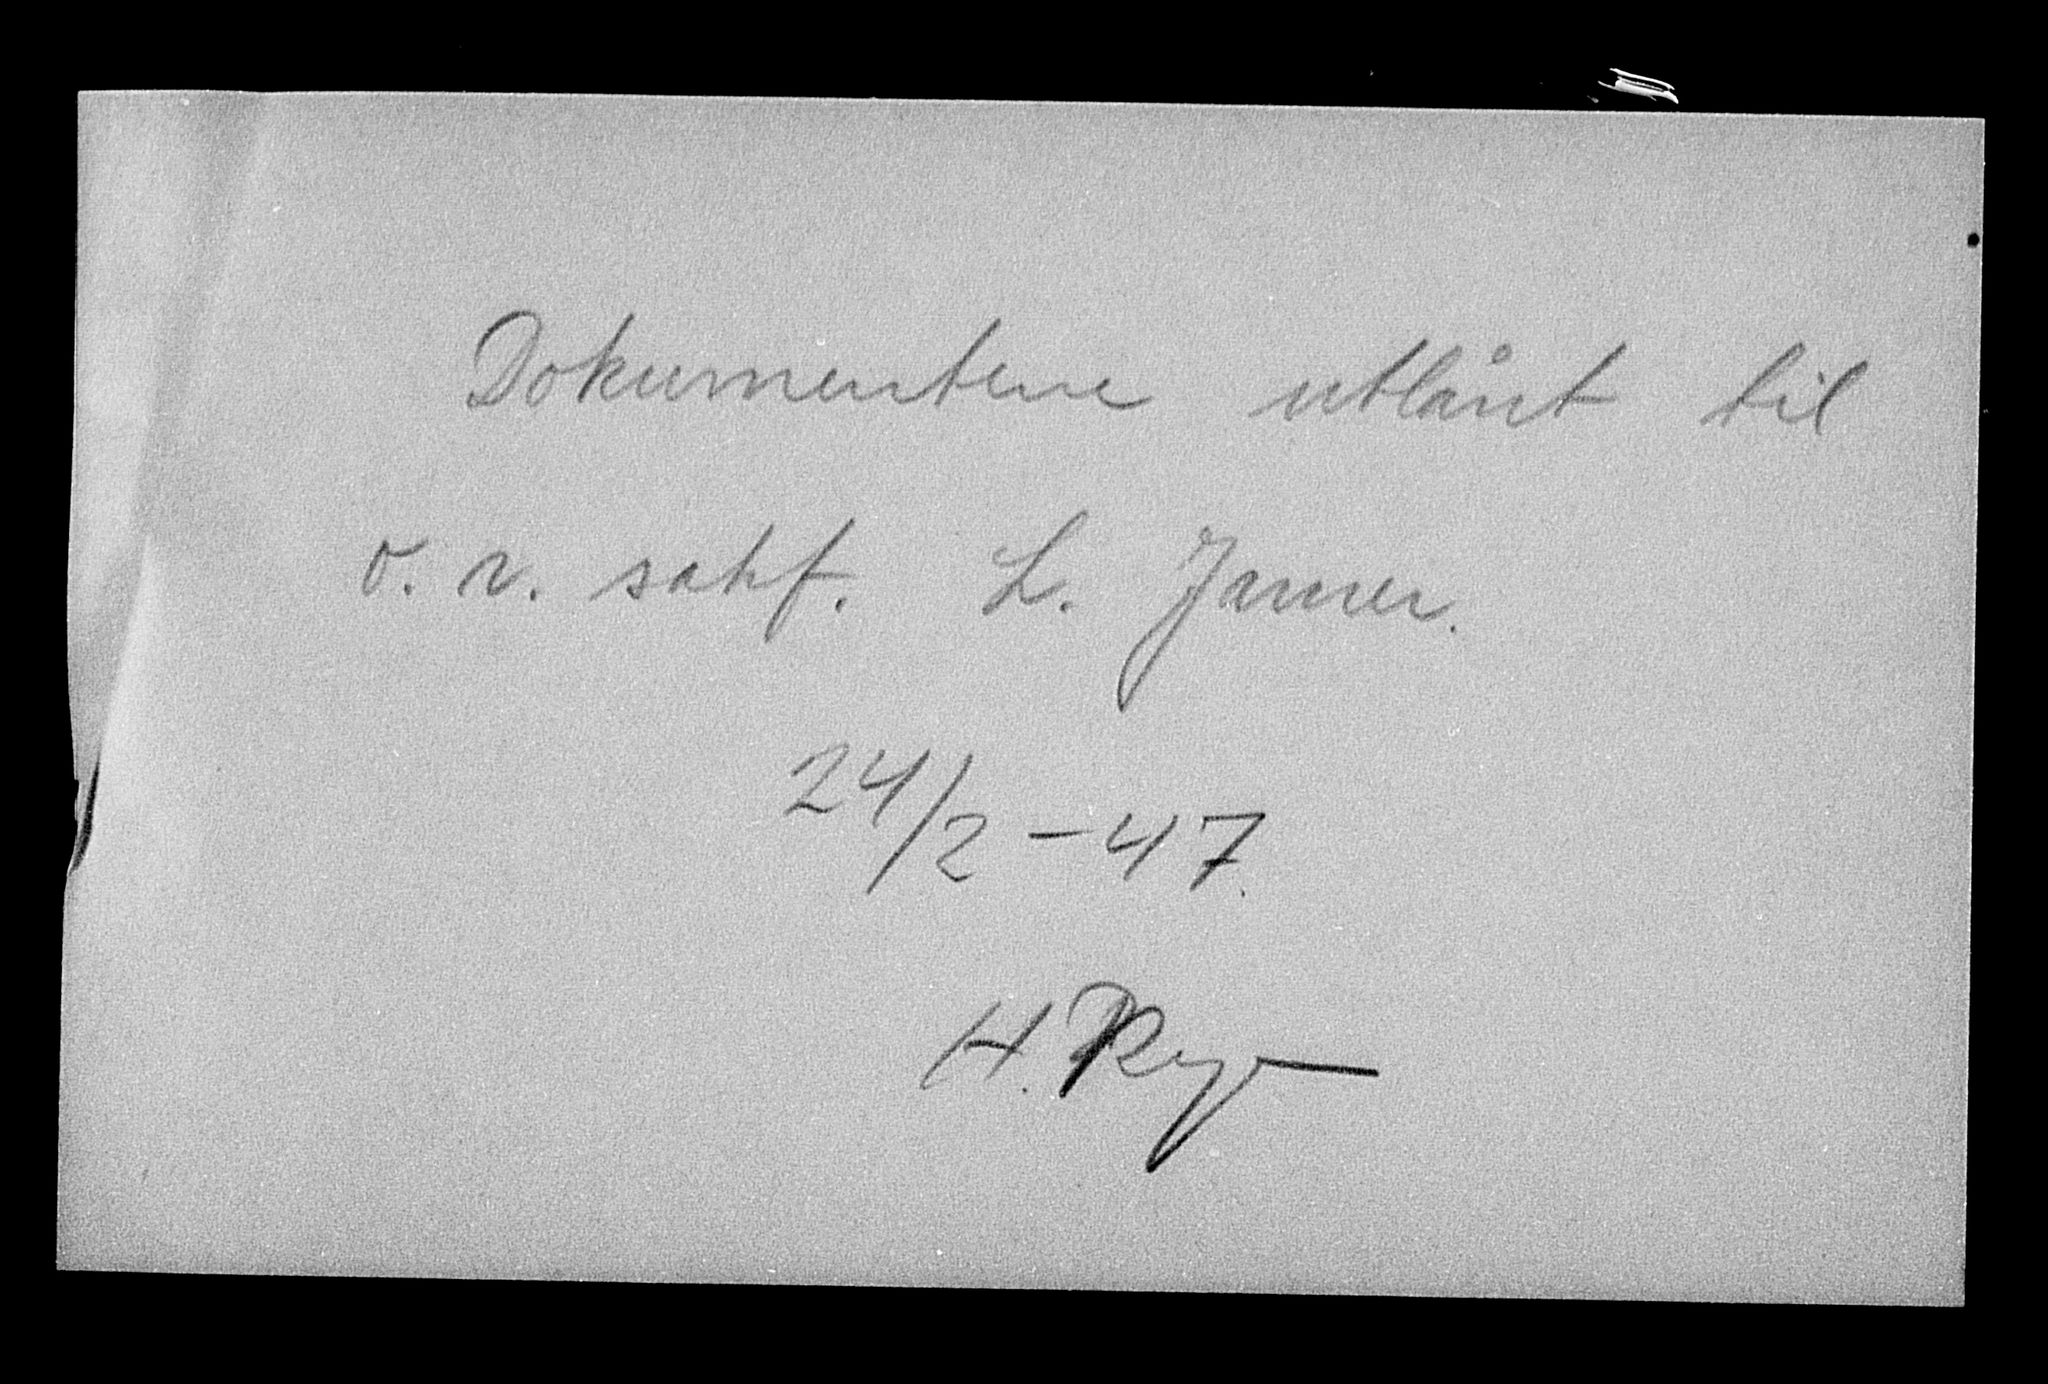 Dokumentene utlånt til
o. r. sakf. L. Jamer.
24/2 – 47.
H. Ryo